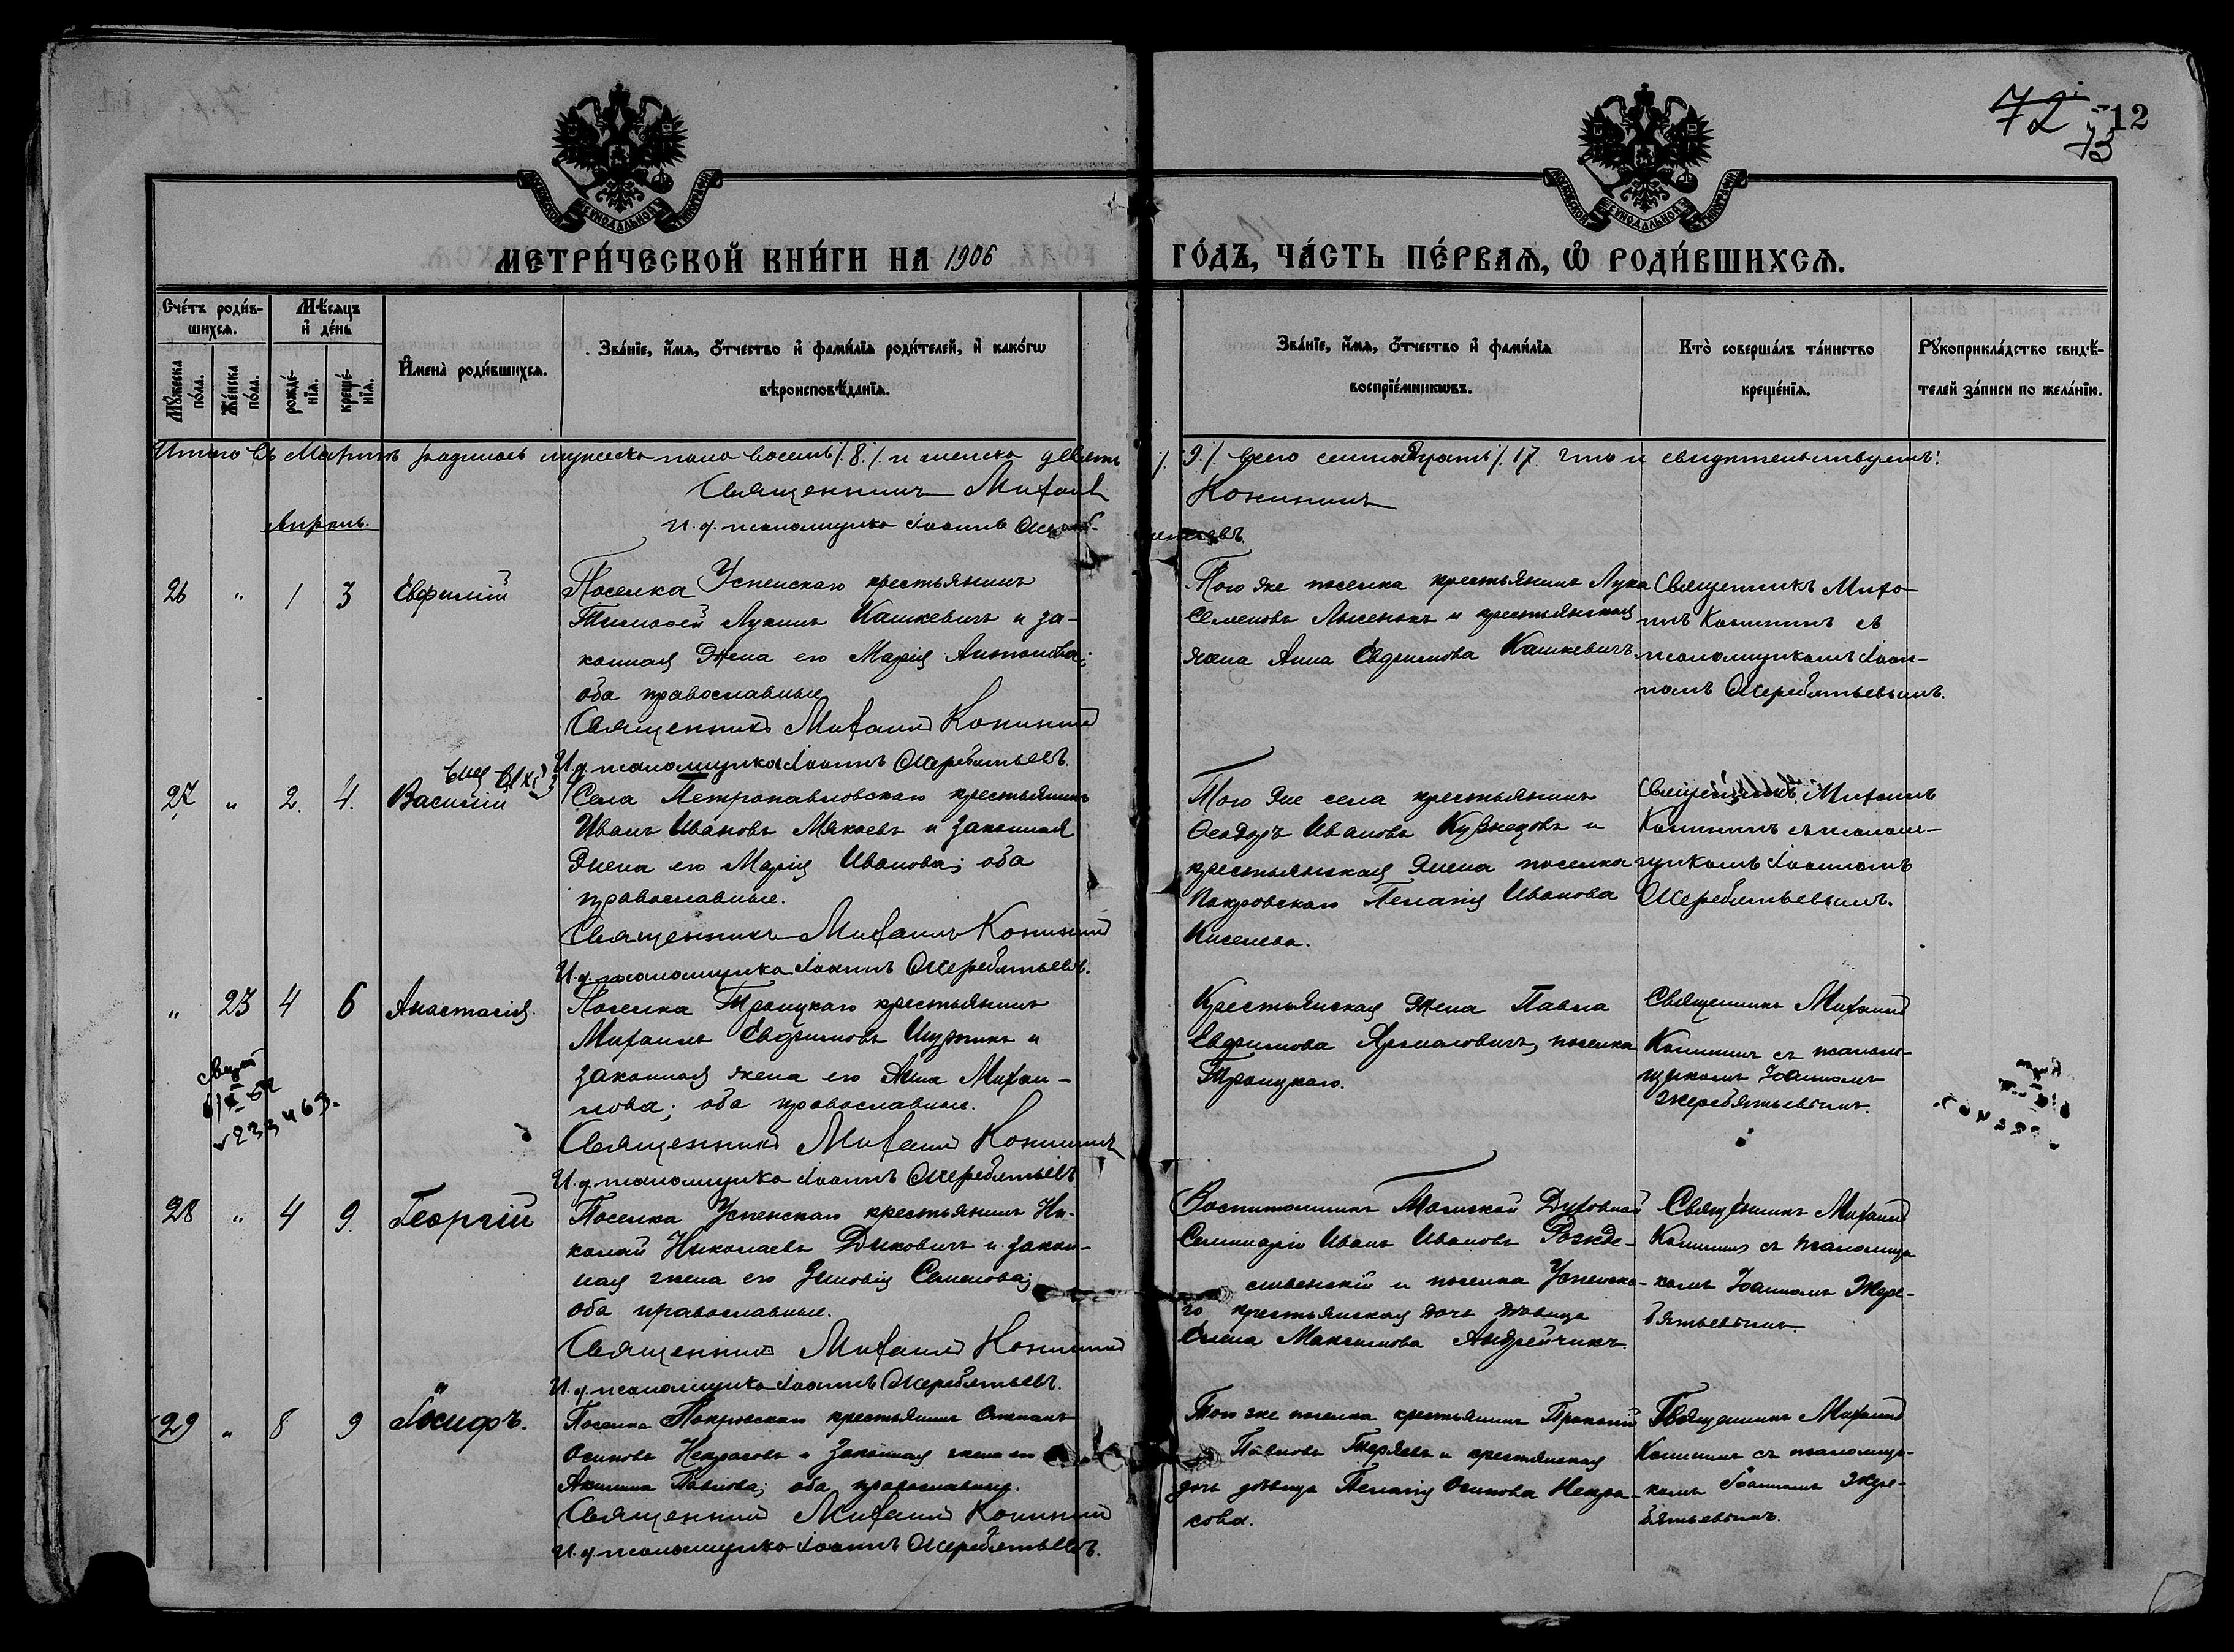 72 12
73
МОСКОВСКОЙ СѴНОДАЛЬНОЙ ТИПОГРАФІИ
МОСКОВСКОЙ СѴНОДАЛЬНОЙ ТИПОГРАФІИ
МЕТРИ́ЧЕСКОЙ КНИ́ГИ НА 1906 ГО́ДЪ, ЧА́СТЬ ПЕ́РВАѦ, Ѡ РОДИ́ВШИХСѦ.
Сче́тъ роди́в-
шихсѧ.
Мꙋ́жеска по́ла.
Же́нска по́ла.
Мѣ́сѧцъ и҆ де́нь
рожде́-
нїѧ.
креще́-
нїѧ.
И҆мена̀ роди́вшихсѧ.
Зва́нїе, и҆́мѧ, ѻ҆́тчество и҆ фами́лїѧ роди́телей, и҆ како́гѡ
вѣроисповѣ́данїѧ.
Зва́нїе, и҆́мѧ, ѻ҆́тчество и҆ фами́лїѧ
воспрїе́мникѡвъ.
Кто̀ соверша́лъ та́инство
креще́нїѧ.
Рꙋкоприкла́дство свидѣ́-
телей за́писи по жела́нїю.
Итого въ Мартѣ родилось мужеска пола восемь /.8./. и женска девять /.9./. всего семнадцать /.17. что и свидѣтельствуемъ:
Священникъ Михаилъ Конининъ
И. д. псаломщика Іоаннъ Жеребятьевъ.
Апрѣль.
26 " 1 3 Евфимій
Поселка Успенскаго крестьянинъ
Тимофей Лукинъ Кашкевичъ и за-
конная жена его Марія Антонова;
оба православные
Священникъ Михаилъ Конининъ
И. д. псаломщика Іоаннъ Жеребятьевъ.
Того же поселка крестьянинъ Лука
Семеновъ Лысенокъ и крестьянская
жена Анна Евфимова Кашкевичъ.
Священникъ Миха-
илъ Конининъ съ
псаломщикомъ Іоан-
номъ Жеребятьевымъ.
27 " 2. 4. Василій
Села Петропавловскаго крестьянинъ
Иванъ Ивановъ Макаевъ и законная
жена его Марія Иванова; оба
православные.
Священникъ Михаилъ Конининъ
И. д. псаломщика Іоаннъ Жеребятьевъ.
Того же села крестьянинъ
Ѳеодоръ Ивановъ Кузнецовъ и
крестьянская жена поселка
Покровскаго Пелагія Иванова
Киселева.
Священникъ Михаилъ
Конининъ съ псалом-
щикомъ Іоанномъ
Жеребятьевымъ.
" 23 4 6 Анастасія.
233469.
Поселка Троицкаго крестьянинъ
Михаилъ Евфимовъ Шуршикъ и
законная жена его Анна Михаи-
лова; оба православные.
Священникъ Михаилъ Конининъ
И. д. псаломщика Іоаннъ Жеребятьевъ
Крестьянская жена Павла
Евфимова Ярмоловичъ, поселка
Троицкаго.
Священникъ Михаилъ
Конининъ съ псалом-
щикомъ Іоанномъ
Жеребятьевымъ.
28 " 4 9. Георгій
Поселка Успенскаго крестьянинъ Ни-
колай Николаевъ Дыковичъ и закон-
ная жена его Зиновія Семенова;
оба православные.
Священникъ Михаилъ Конининъ
И. д. псаломщика Іоаннъ Жеребятьевъ.
Воспитанникъ Томской Духовной
Семинаріи Иванъ Ивановъ Рожде-
ственскій и поселка Успенска-
го крестьянская дочь дѣвица
Елена Максимова Андрейчикъ
Священникъ Михаилъ
Конининъ съ псаломщи
комъ Іоанномъ Жере-
бятьевымъ.
29 " 8 9 Іосифъ.
Поселка Покровскаго крестьянинъ Степанъ
Осиповъ Некрасовъ и законная жена его
Акилина Павлова; оба православные.
Священникъ Михаилъ Конининъ
И. д. псаломщика Іоаннъ Жеребятьевъ.
Того же поселка крестьянинъ Прокопій
Павловъ Терлевъ и крестьянская
дочь дѣвица Пелагія Осипова Некра-
сова.
Священникъ Михаилъ
Конининъ съ псаломщи-
комъ Іоанномъ Жере-
бятьевымъ.